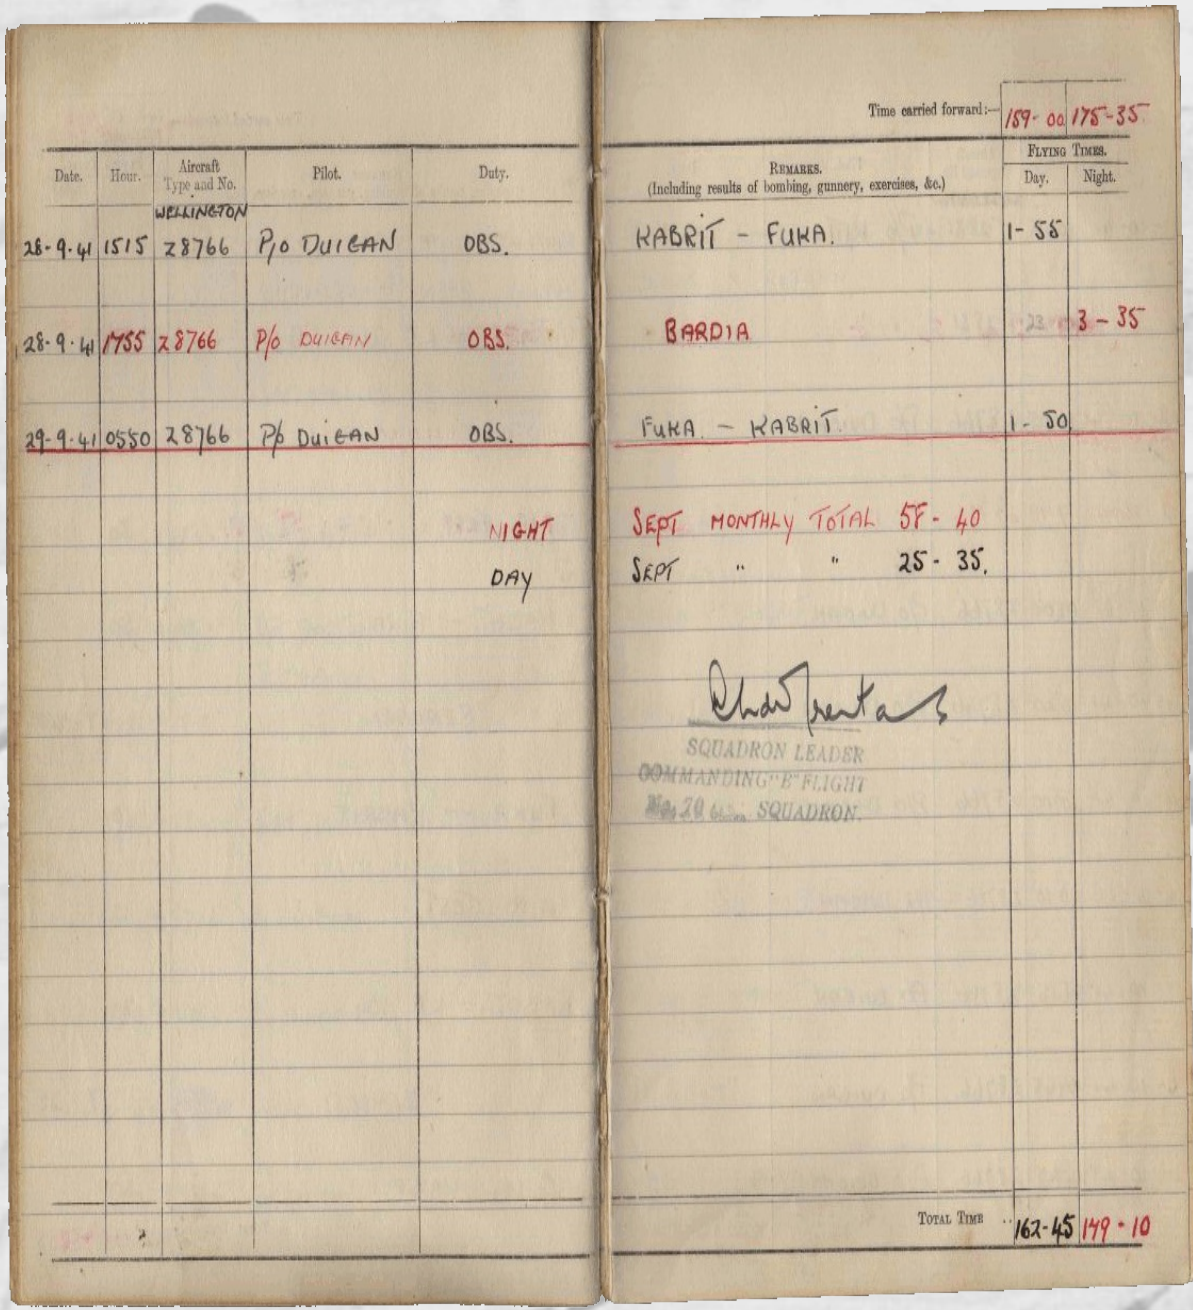 Time carried forward:— 159-00 175-35
Date. Hour. Aircraft Type and No. Pilot. Duty. REMARKS. (Including results of bombing, gunnery, exercises, &c.) FLYING TIMES. Day. Night.
WELLINGTON
28-9-41 1515 Z8766 P/O DUIGAN OBS. KABRIT - FUKA. 1-55
28-9-41 1755 Z8766 P/O DUIGAN OBS. BARDIA 3-35
29-9-41 0550 Z8766 P/O DUIGAN OBS. FUKA. - KABRIT. 1-50
NIGHT SEPT MONTHLY TOTAL 58-40
DAY SEPT " " 25-35.
SQUADRON LEADER
COMMANDING "B" FLIGHT
No. 70 SQUADRON.
TOTAL TIME .. 162-45 179-10